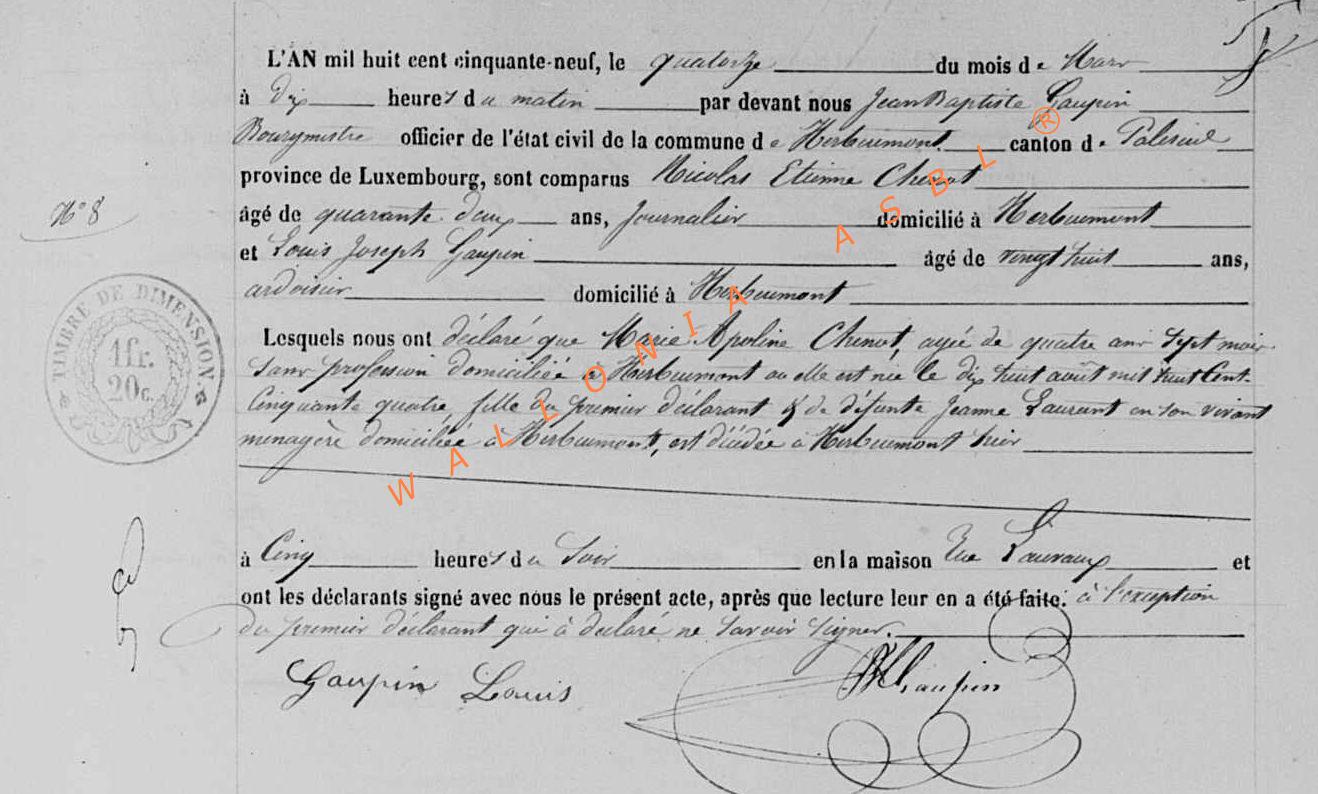 L'AN mil huit cent cinquante-neuf, le quatorze du mois de Mars
à dix heures du matin par devant nous Jean Baptiste Gaupin
Bourgmestre officier de l'état civil de la commune de Herbeumont canton de Paliseul
province de Luxembourg, sont comparus Nicolas Etienne Chenot
N° 8
âgé de quarante deux ans, journalier domicilié à Herbeumont
et Louis Joseph Gaupin âgé de vingt huit ans,
ardoisier domicilié à Herbeumont
TIMBRE DE DIMENSION.
1 fr.
20 c.
Lesquels nous ont déclaré que Marie Apoline Chenot, agée de quatre ans sept mois
sans profession domiciliée à Herbeumont ou elle est née le dix huit août mil huit Cent
Cinquante quatre, fille du premier déclarant & de défunte Jeanne Laurent en son vivant
menagère domiciliée à Herbeumont, est décédée à Herbeumont hier
à Cinq heures du Soir en la maison Rue et
ont les déclarants signé avec nous le présent acte, après que lecture leur en a été faite. à l'exception
du premier déclarant qui à déclaré ne savoir signer.
Gaupin Louis
Gaupin
WALLONIA ASBL ®